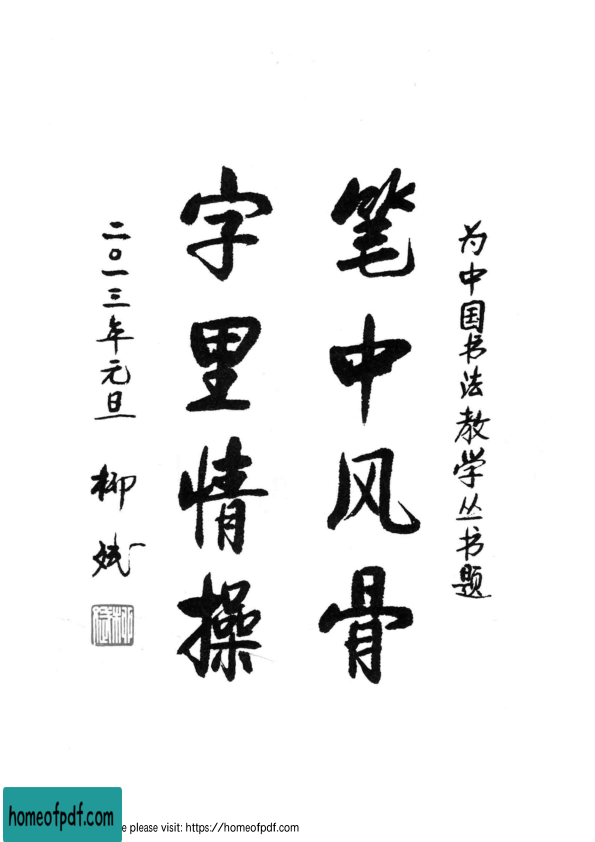 为中国书法教学丛书题
笔中风骨
字里情操
二〇一三年元旦 柳斌
homeofpdf.com
e please visit: https://homeofpdf.com